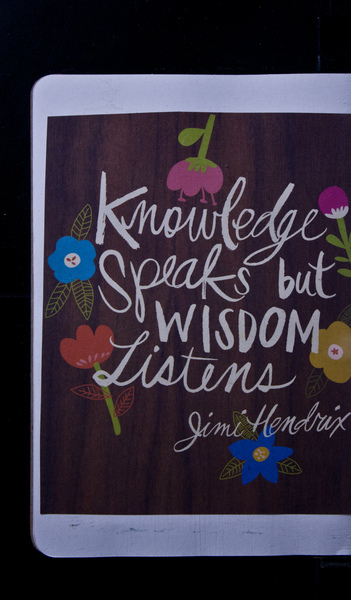 Knowledge
Speaks but
WISDOM
Listens
Jimi Hendrix